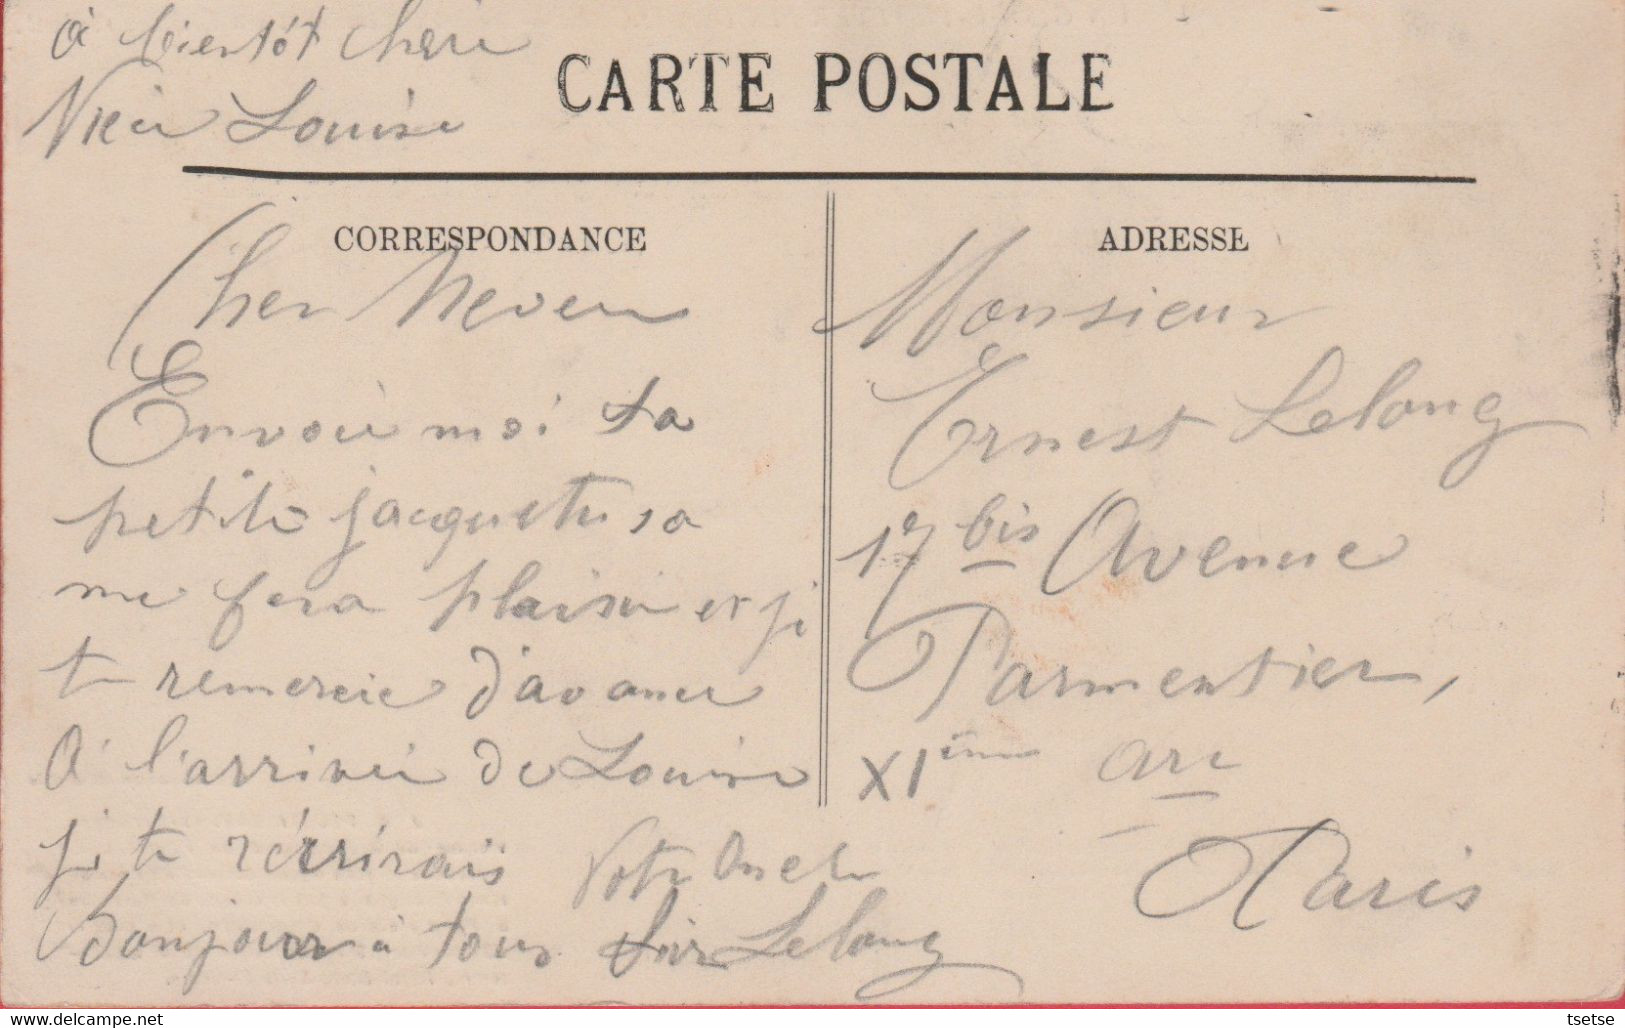 à bientôt chère
Nièce Louise
CARTE POSTALE
CORRESPONDANCE
Cher Neveu
Envoie moi ta
petite jaquette sa
me fera plaisir et je
te remercie d'avance
à l'arrivée de Louise
je te récrirais Votre Oncle
Bonjour à tous Lelong
ADRESSE
Monsieur
Ernest Lelong
17 bis Avenue
Parmentier,
XIème arr
Paris
tsetse